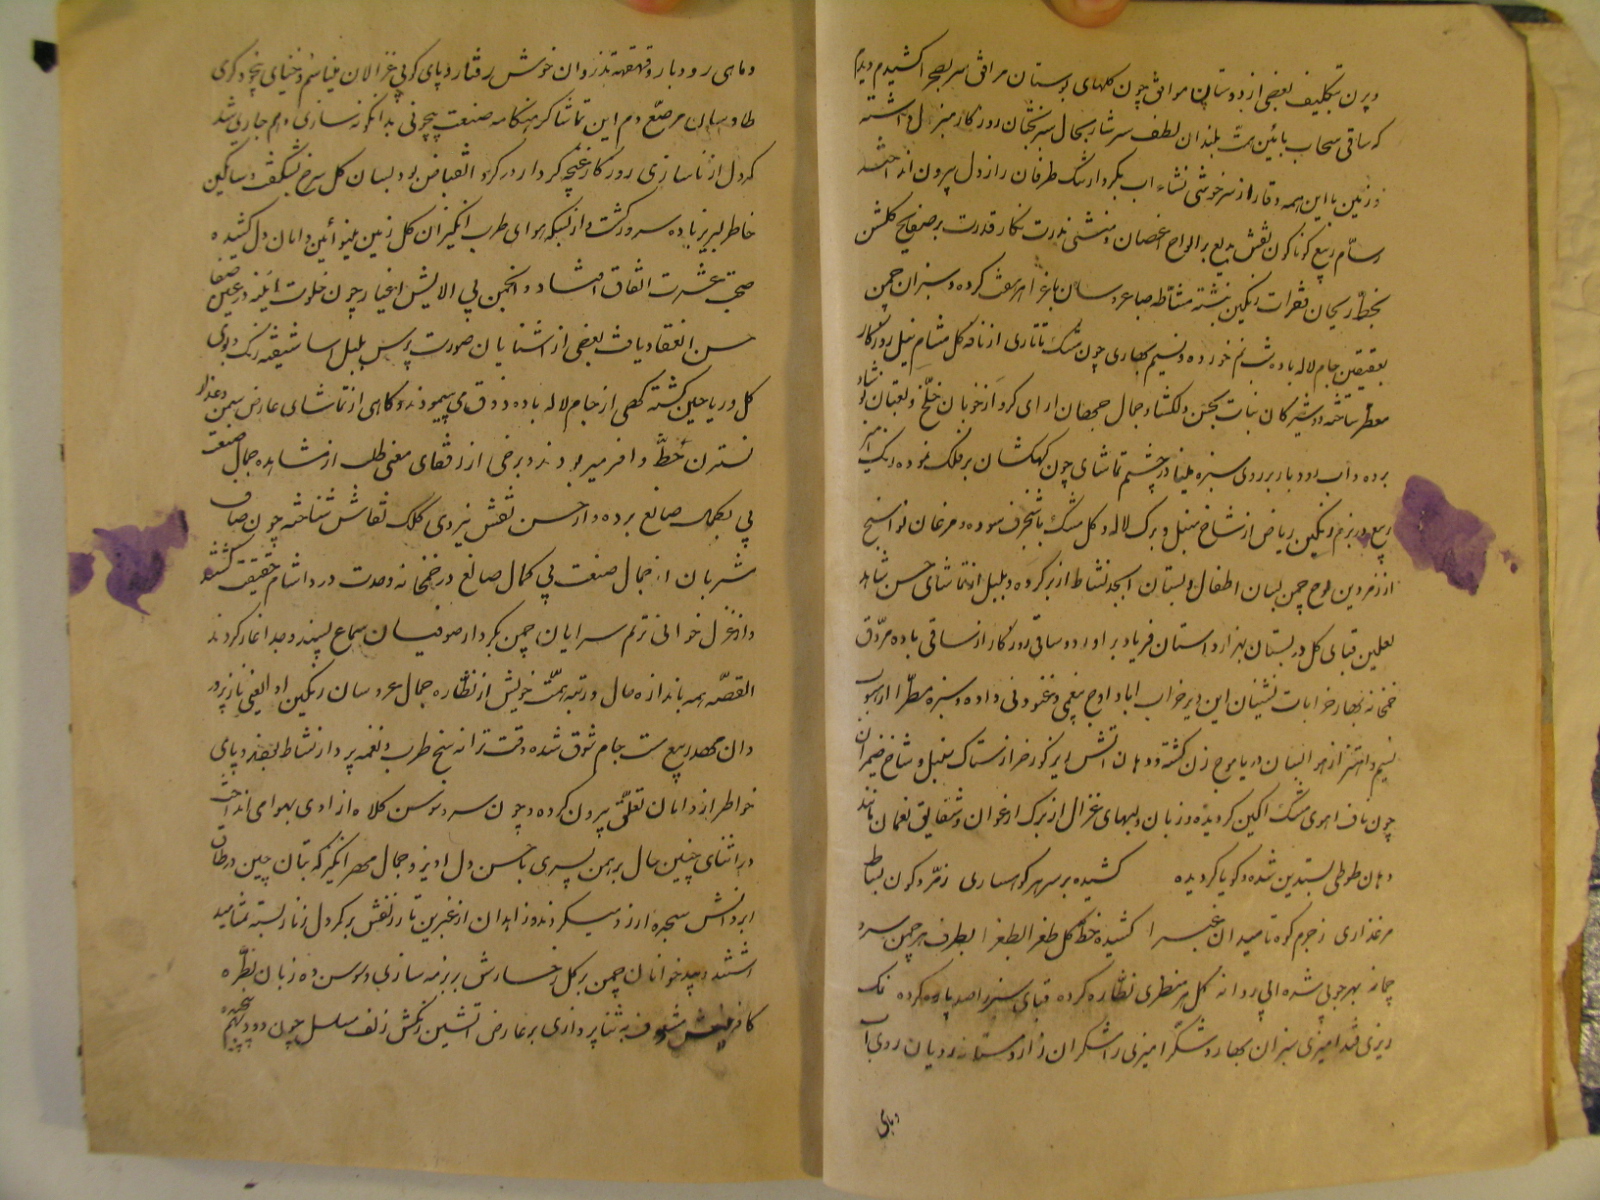 وپرن بتکلیف بعضی از دوستان موافق چون گلهای بوستان مرافق سر بصحرا کشیدم دیدم
که ساقی سحاب بآئین همت بلندان لطف سرشار بحال سبزبختان روزگار مبذول داشته
و زمین با این همه وقار از سرخوشی نشاء اب بکردار تنک ظرفان راز دل بیرون انداخته
رسّام ربیع کوناکون نقش بدیع بر الواح اغصان و منشی ندرت نکار قدرت بر صفایح کلشن
بخط ریحان فقرات رنکین نبشته مشاطه صبا عروسان باغ را هر هفت کرده و سبزان چمن
بعقیقین جام لاله باده شبنم خورده و نسیم بهاری چون مشک تاتاری از نافه کل مشام نیل روزکار
معطر ساخته دوشیزکان نبات بحسن دلکشا و جمال جهان ارای کرو از خوبان خلّخ و لعبتان نوشاد
برده و اب رودبار بر روی سبزه مینا در چشم تماشای چون کهکشان بر فلک نموده رنک امیز
ربیع در بزم رنکین ریاض از شاخ سنبل و برک لاله و کل مشک با شنجرف سوده و مرغان نواسنج
از زمردین لوح چمن بسان اطفال دبستان ابجد نشاط از بر کرده و بلبل از تماشای حسن شاهد
لعلین قبای کل در بستان هزار داستان فریاد بر اورده و ساقی روزکار از ساقی باده مروّق
خمخانه بهار خرابات نشینان این دیر خراب اباد را وج بیغمی و غنودنی داده و سبزه مطرّا از هبوب
نسیم و اهتزاز هوا بسان دریا موج زن کشته و دهان اتشین ایر کورخر از ستاک سنبل و شاخ ضیمران
چون ناف اهوی مشک اکین کردیده و زبان و لبهای غزال از برک ارغوان و شقایق نعمان مانند
دهان طوطی بسدین شده و کویا کردیده کشیده بر سر هر کوهساری زمرد کون بساط
مرغزاری ز جرم کوه تا میدان غبرا کشیده خط کل طغرا بطغرا بطرف هر چمن سرو
چمانه بهر جوبی شده ابی روانه کل هر منظری نظاره کرده قبای سبز را صد پاره کرده نمک
ریزی قند امیزی سبزان بهار و شکر امیزی رامشکران هزار دستانه رویان روی اب
وبای
و ماهی رودبار و قهقهه تذروان خوش رفتار و پای کوبی غزالان میناسم و خنیای پنجه و کوی
طاوسان مرصّع دم این تماشا کر هنکامه صنعت بیچونی بدانکونه سازی دهم جاری شد
که دل از ناسازی روزکار غنچه کردار در کرو القباض بود بسان کل سرخ بشکفت و ساتکین
خاطر لبریز باده سرور کشت و از بسکه هوای طرب انکیز ان کل زمین مینو ائین دامان دل کشیده
صحبت عشرت اتفاق افتاد و انجمن بی الایش اغیار چون خلوت آینه در عین صفا
حسن انعقاد یافت بعضی از اشنایان صورت پرست بلبل اسا شیفته رنک و بوی
کل و ریاحین کشته کهی از جام لاله باده ذوق می پیمودند و کاهی از تماشای عارض سمن و عذار
نسترن حظّ وافر میربودند و برخی از رفقای معنی طلب از مشاهده جمال صنعت
پی بکمال صانع برده و از حسن نقش نیروی کلک نقاش شناخته چون صاف
مشربان از جمال صنعت پی کمال صانع در خمخانه وحدت درد اشام حقیقت کشتند
و از غزل خوانی ترنم سرایان چمن بکردار صوفیان سماع پسند وجد اغاز کردند
القصّه همه باندازه حال و رتبه همّت خویش از نظّاره جمال عروسان رنکین اد الیغی ناز پرور
دان مهد ربیع مست جام شوق شده وقت ترانه سنج طرب و نغمه پرداز نشاط بودند و پای
خواطر از دامان تعلّق بیرون کرده و چون سرو و سوسن کلاه ازادی بهوای انداخته
در اثنای چنین حال برهمن پسری با حسن دل اویز و جمال مهر انکیز که بتان چین در طاق
ابروانش سجده ارزو میکردند و زاهدان از عنبرین تار زلفش بر کرد دل زنار بسته نمایید
اشتند و بید خوانان چمن بر کل رخسارش بزمزمه سازی و سوسن ده زبان بطرّه
کافر کیش مشغوف به ثنا پردازی بر عارض اتشین رنکش زلف مسلسل چون دود بهم پیچیده